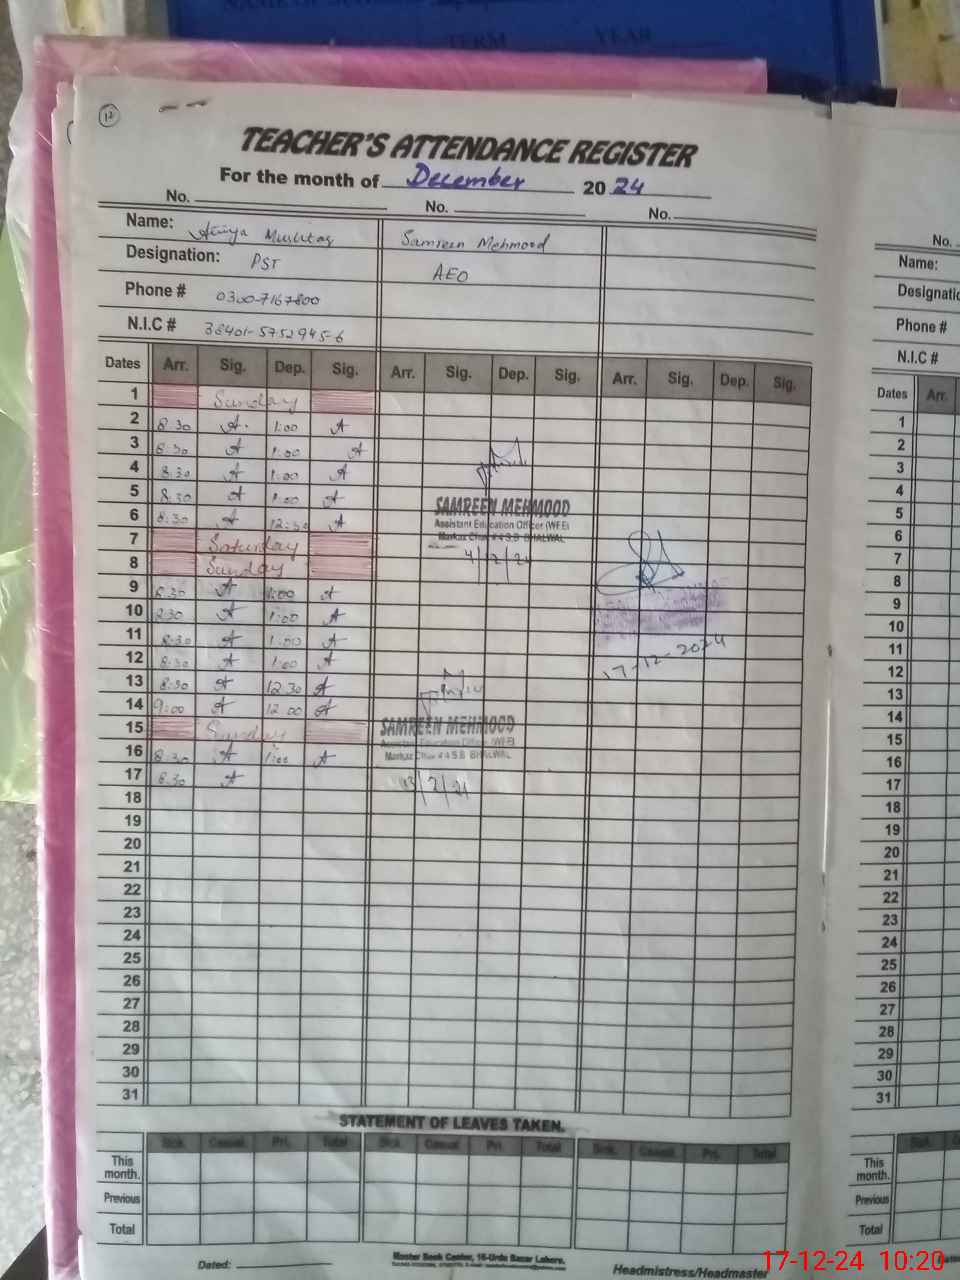 NAME OF SCHOOL
TERM YEAR
12
TEACHER'S ATTENDANCE REGISTER
For the month of December 2024
No. No. No.
Name: Mushtaq Samreen Mehmood
Designation: PST AEO
Phone # 0300-7167800
N.I.C # 38401-5752945-6
Dates Arr. Sig. Dep. Sig. Arr. Sig. Dep. Sig. Arr. Sig. Dep. Sig.
1 Sunday
2 8:30 A. 1:00 A
3 8:30 A 1:00 A
4 8:30 A 1:00 A
5 8:30 A 1:00 A
6 8:30 A 12:30 A
7 Saturday
8 Sunday
9 8:30 A 1:00 A
10 8:30 A 1:00 A
11 8:30 A 1:00 A
12 8:30 A 1:00 A
13 8:30 A 12:30 A
14 9:00 A 12:00 A
15 Sunday
16 8:30 A 1:00 A
17 8:30 A
18
19
20
21
22
23
24
25
26
27
28
29
30
31
SAMREEN MEHMOOD
Assistant Education Officer (WFE)
BHALWAL
4/12/24
17-12-2024
SAMREEN MEHMOOD
Assistant Education Officer (WFE)
BHALWAL
STATEMENT OF LEAVES TAKEN.
Sick. Casual. Pri. Total Sick. Casual. Pri. Total Sick. Casual. Pri. Total
This month.
Previous
Total
Dated:
Master Book Center, 16-Urdu Bazar Lahore.
Headmistress/Headmaster
No.
Name:
Phone #
N.I.C #
Dates Arr.
1
2
3
4
5
6
7
8
9
10
11
12
13
14
15
16
17
18
19
20
21
22
23
24
25
26
27
28
29
30
31
This month.
Previous
Total
17-12-24 10:20